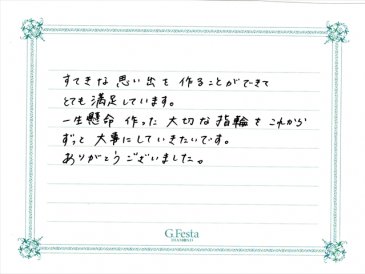 すてきな思い出を作ることができて
とても満足しています。
一生懸命作った大切な指輪をこれから
ずっと大事にしていきたいです。
ありがとうございました。
G.Festa